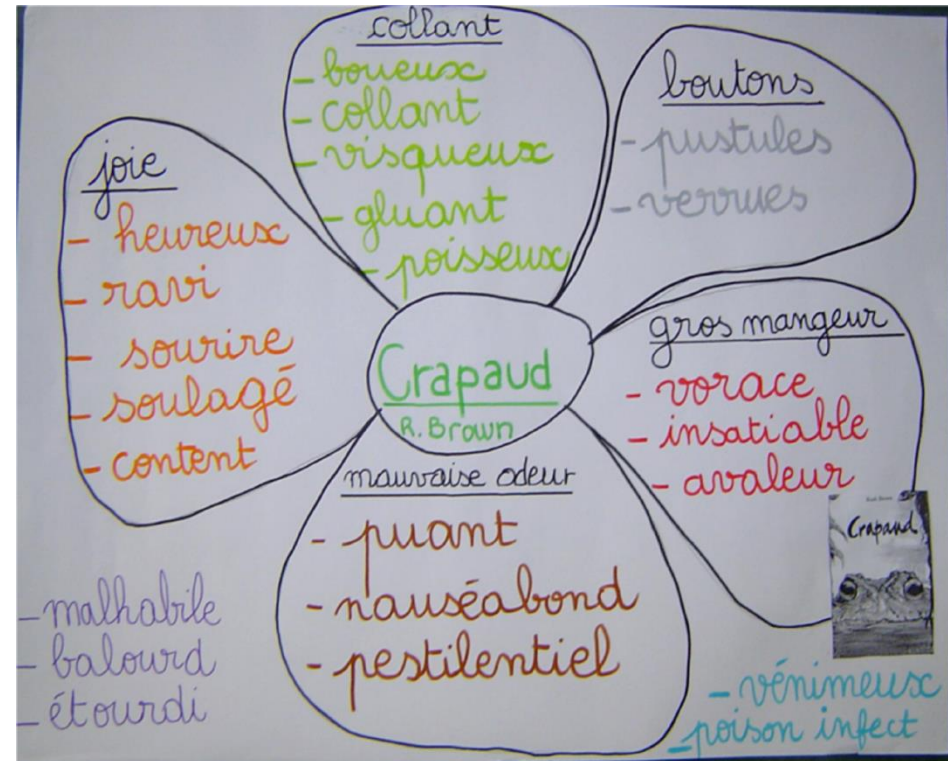 collant
- boueux
- collant
- visqueux
- gluant
- poisseux
boutons
- pustules
- verrues
joie
- heureux
- ravi
- sourire
- soulagé
- content
Crapaud
R. Brown
gros mangeur
- vorace
- insatiable
- avaleur
mauvaise odeur
- puant
- nauséabond
- pestilentiel
Crapaud
- malhabile
- balourd
- étourdi
- vénimeux
- poison infect